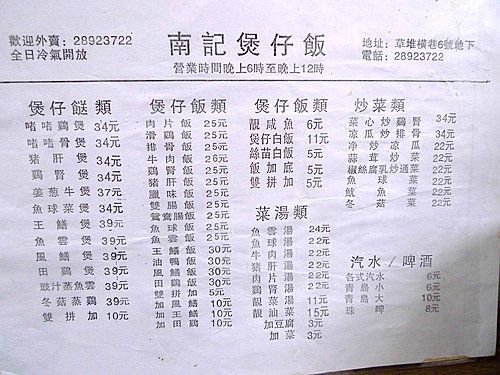 歡迎外賣：28923722
全日冷氣開放
南記煲仔飯
營業時間晚上6時至晚上12時
地址：草堆橫巷6號地下
電話：28923722
煲仔餸類
啫啫雞煲 34元
啫啫骨煲 34元
豬肝煲 34元
雞腎煲 34元
姜葱牛煲 37元
魚球菜煲 34元
王鱔煲 39元
魚雲煲 39元
風鱔煲 39元
田雞煲 39元
豉汁蒸魚雲 39元
冬菇蒸雞 39元
雙拼加 10元
煲仔飯類
肉片飯 25元
滑雞飯 25元
排骨飯 25元
牛肉飯 26元
雞腎飯 25元
豬肝飯 25元
臘味飯 25元
雙腸飯 25元
鴛鴦腸飯 25元
魚球飯 25元
魚雲飯 25元
王鱔飯 30元
油鴨飯 30元
風鱔飯 30元
田雞飯 30元
雙拼加 5元
加風鱔 10元
加王鱔 10元
加田雞 10元
煲仔飯類
靚咸魚 6元
煲仔白飯 11元
絲苗白飯 5元
飯加底 5元
雙拼加 5元
菜湯類
魚雲湯 24元
魚球湯 22元
牛肉湯 22元
豬肝湯 22元
肉片湯 22元
雞腎湯 22元
靚菜湯 11元
靚油菜 15元
加豆腐 3元
加菜 3元
炒菜類
菜心炒雞腎 34元
涼瓜炒排骨 34元
净炒涼瓜 22元
蒜茸炒菜 22元
椒絲腐乳炒通菜 22元
魚球菜 22元
魷魚菜 22元
冬菇菜 22元
汽水/啤酒
各式汽水 6元
青島小 6元
青島大 10元
珠啤 8元